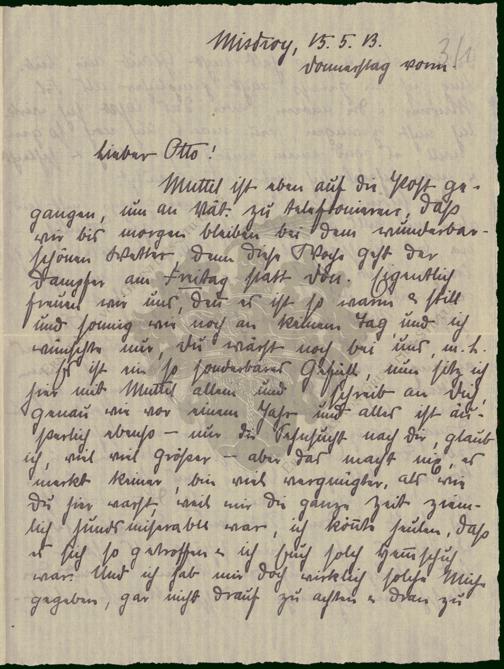 Misdroy, 15.5.13.
Donnerstag vorm.
3/1
Lieber Otto!
Muttel ist eben auf die Post ge-
gangen, um an Vat. zu telefonieren, daß
wir bis morgen bleiben bei dem wunderbar-
schönen Wetter, denn diese Woche geht der
Dampfer am Freitag statt Don. Eigentlich
freuen wir uns, denn es ist so warm & still
und sonnig wie noch an keinem Tag und ich
wünschte nur, Du wärst noch bei uns, m. l.
Es ist ein so sonderbares Gefühl, nun sitz ich
hier mit Muttel allein und schreib an dich,
genau wie vor einem Jahr und alles ist äu-
ßerlich ebenso – nur die Sehnsucht nach dir, glaub
ich, viel viel größer – aber das macht nix, es
merkt keiner, bin viel vergnügter, als wie
Du hier warst, weil mir die ganze Zeit ziem-
lich hundsmiserabel war, ich könnte heulen, daß
es sich so getroffen & ich solch
war. Und ich hab mir doch wirklich solche Mühe
gegeben, gar nicht drauf zu achten & dran zu